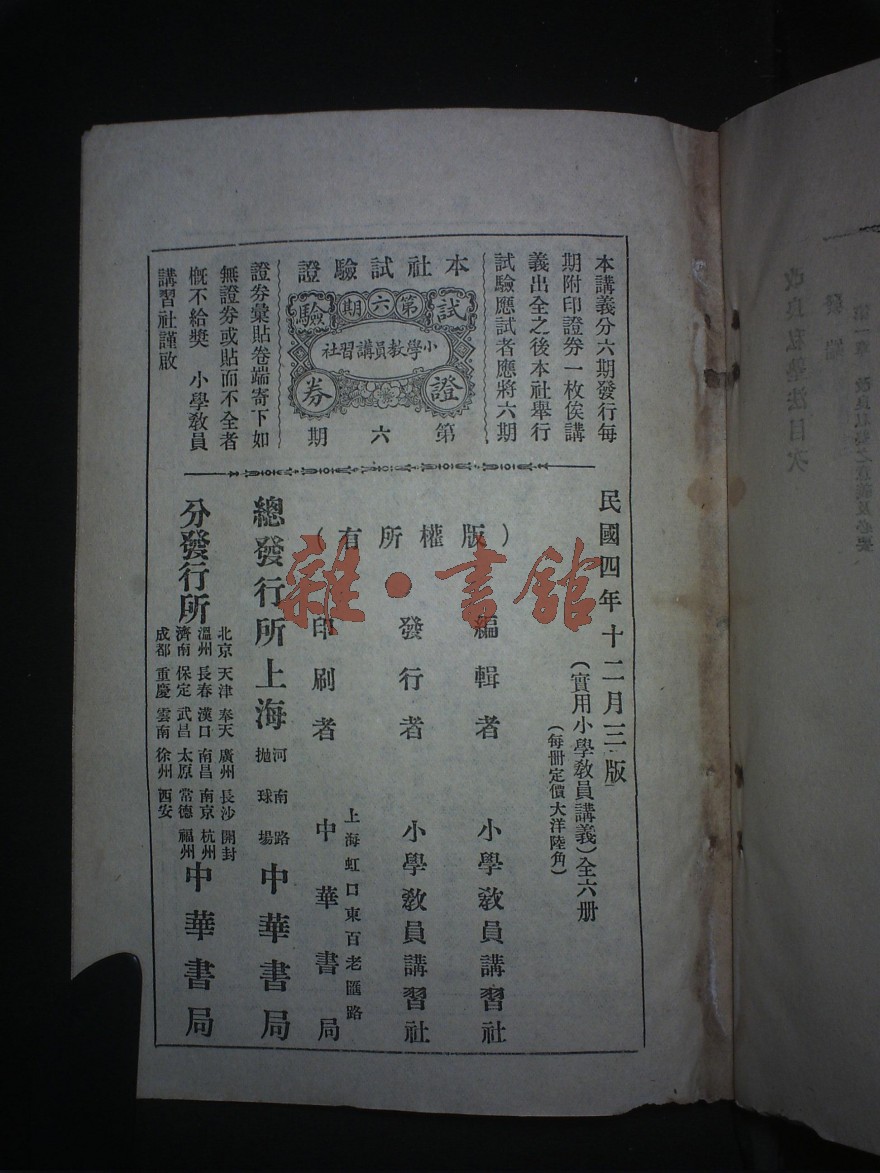 本講義分六期發行每
期附印證券一枚俟講
義出全之後本社舉行
試驗應試者應將六期
本社試驗證
試驗證券
第六期
小學教員講習社
第六期
證券彙貼卷端寄下如
無證券或貼而不全者
概不給獎 小學教員
講習社謹啟
民國四年十二月三版
(實用小學教員講義)全六册
(每冊定價大洋陸角)
(版權所有)
編輯者 小學教員講習社
發行者 小學教員講習社
印刷者 上海虹口東百老匯路 中華書局
總發行所 上海 河南路 拋球場 中華書局
分發行所
北京 天津 奉天 廣州 長沙 開封
溫州 長春 漢口 南昌 南京 杭州
濟南 保定 武昌 太原 常德 福州
成都 重慶 雲南 徐州 西安
中華書局
雜·書館
改良私塾法目次
發端